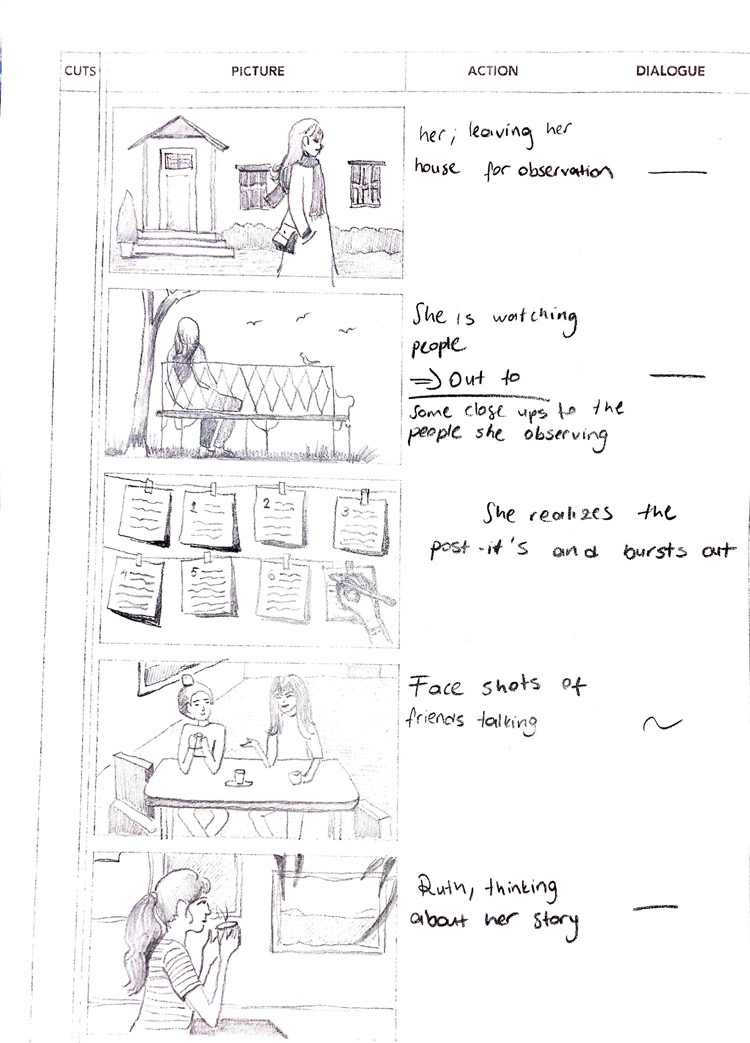 CUTS PICTURE ACTION DIALOGUE
her, leaving her
house for observation
She is watching
people
=> Out to
some close ups to the
people she observing
1 2 3
She realizes the
post-it's and bursts out
4 5 6
Face shots of
friends talking
Ruth, thinking
about her story